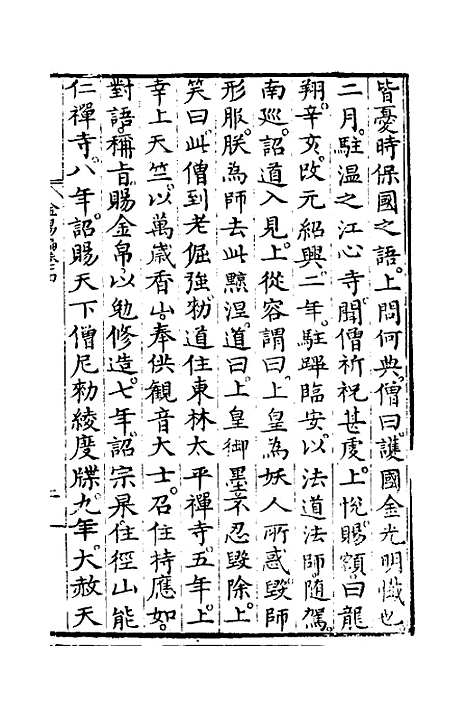 皆憂時保國之語上問何典僧曰護國金光明懺也
二月駐温之江心寺聞僧祈祝甚虔上悅賜額曰龍
翔辛亥改元紹興二年駐蹕臨安以法道法師隨駕
南廵詔道入見上從容謂曰上皇為妖人所惑毀師
形服朕為師去此黥涅道曰上皇御墨不忍毀除上
笑曰此僧到老倔強勑道住東林太平禪寺五年上
幸上天竺以萬歲香山奉供觀音大士召住持應如
對語稱旨賜金帛以勉修造七年詔宗杲住徑山能
仁禪寺八年詔賜天下僧尼勑綾度牒九年大赦天